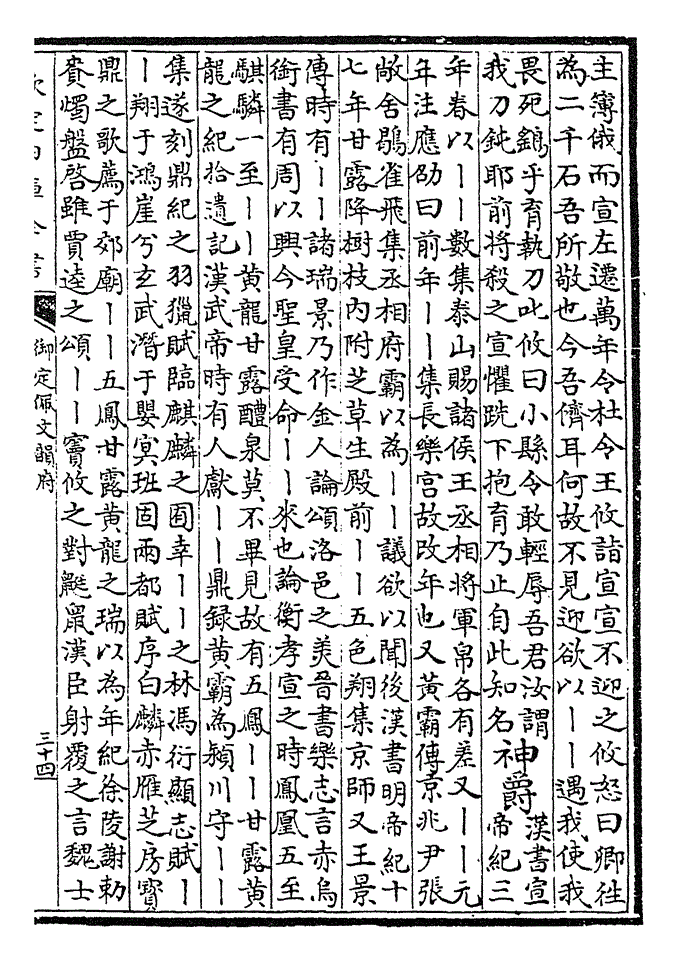 主簿俄而宣左遷萬年令杜令王攸詣宣宣不迎之攸怒曰卿徃
為二千石吾所敬也今吾儕耳何故不見迎欲以丨丨遇我使我
畏死乎育執刀叱攸曰小縣令敢輕辱吾君汝謂
我刀鈍耶前將殺之宣懼跣下抱育乃止自此知名
神爵
漢書宣
帝紀三
年春以丨丨數集泰山賜諸侯王丞相將軍帛各有差又丨丨元
年注應劭曰前年丨丨集長樂宫故改年也又黃霸傳京兆尹張
敞舍鶡雀飛集丞相府霸以為丨丨議欲以聞後漢書明帝紀十
七年甘露降樹枝內附芝草生殿前丨丨五色翔集京師又王景
傳時有丨丨諸瑞景乃作金人論頌洛邑之美晉書樂志言赤烏
銜書有周以興今聖皇受命丨丨來也論衡孝宣之時鳳凰五至
騏驎一至丨丨黃龍甘露醴泉莫不畢見故有五鳳丨丨甘露黃
龍之紀拾遺記漢武帝時有人獻丨丨鼎録黃霸為潁川守丨丨
集遂刻鼎紀之羽獵賦臨麒麟之囿幸丨丨之林馮衍顯志賦丨
丨翔于鴻崖兮玄武潛于嬰冥班固兩都賦序白麟赤雁芝房寶
鼎之歌薦于郊廟丨丨五鳳甘露黃龍之瑞以為年紀徐陵謝勅
賚燭盤啓雖賈逵之頌丨丨竇攸之對鼮鼠漢臣射覆之言魏士
欽定四庫全書
御定佩文韻府
三十四